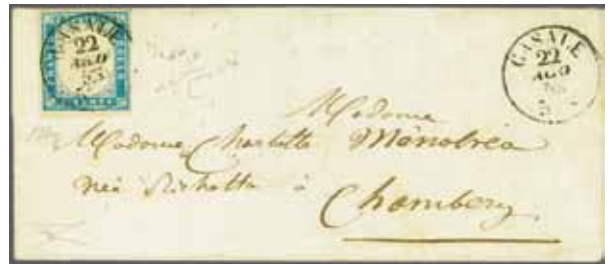 CASALE
22
AGO
55
CASALE
22
AGO
55
Madame
Madame Charlotte Ménabréa
née Richetta à
Chambery